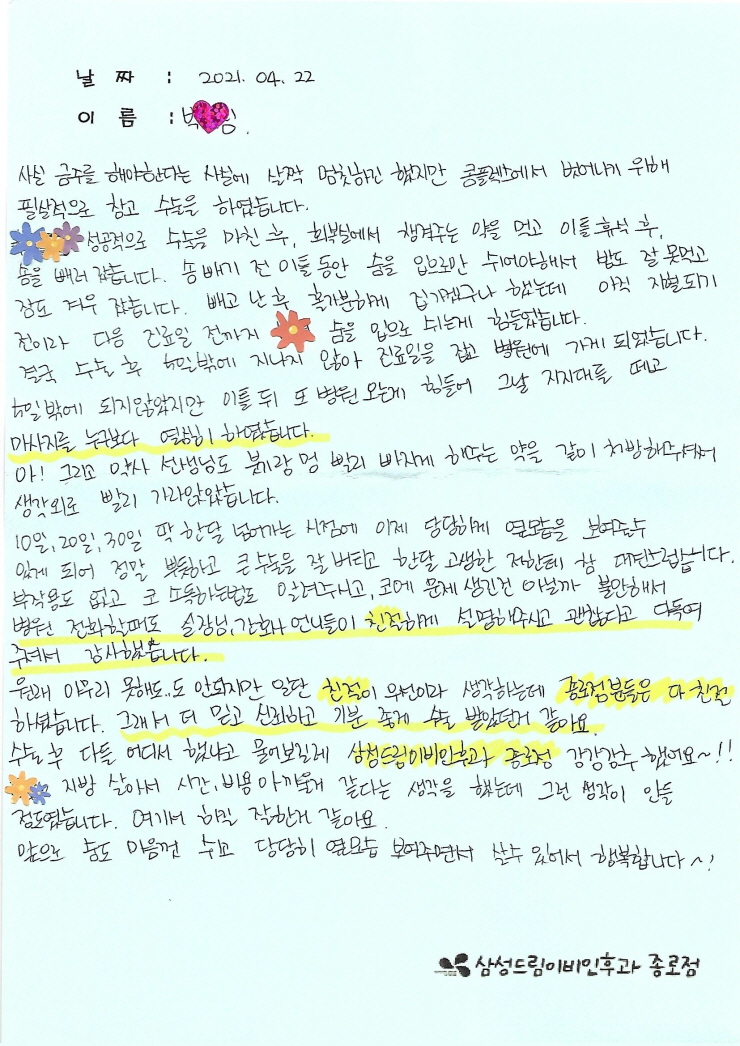 날 짜 : 2021. 04. 22
이 름 : 박
사실 금주를 해야한다는 사실에 살짝 멈칫하긴 했지만 콤플렉스에서 벗어나기 위해
필살적으로 참고 수술을 하였습니다.
성공적으로 수술을 마친 후, 회복실에서 챙겨주는 약을 먹고 이틀 휴식 후,
솜을 빼러 갔습니다. 솜 빼기 전 이틀 동안 숨을 입으로만 쉬어야해서 밥도 잘 못먹고
잠도 겨우 잤습니다. 빼고 난 후 홀가분하게 집가겠구나 했는데 아직 지혈되기
전이라 다음 진료일 전까지 숨을 입으로 쉬는게 힘들었습니다.
결국 수술 후 4일밖에 지나지 않아 진료일을 잡고 병원에 가게 되었습니다.
4일밖에 되지않았지만 이틀 뒤 또 병원 오는게 힘들어 그날 지지대를 떼고
마사지를 누구보다 열심히 하였습니다.
아! 그리고 약사 선생님도 붓기랑 멍 빨리 빠지게 해주는 약을 같이 처방해주셔서
생각외로 빨리 가라앉았습니다.
10일, 20일, 30일 딱 한달 넘어가는 시점에 이제 당당하게 옆모습을 보여줄수
있게 되어 정말 뿌듯하고 큰 수술을 잘 버티고 한달 고생한 저한테 참 대견스럽습니다.
부작용도 없고 코 소독하는법도 알려주시고, 코에 문제 생긴건 아닐까 불안해서
병원 전화할때도 실장님, 간호사 언니들이 친절하게 설명해주시고 괜찮다고 다독여
주셔서 감사했습니다.
원래 아무리 못해도..도 안되지만 일단 친절이 우선이라 생각하는데 종로점분들은 다 친절
하셨습니다. 그래서 더 믿고 신뢰하고 기분 좋게 수술 받았던거 같아요.
수술 후 다들 어디서 했냐고 물어보길래 삼성드림이비인후과 종로점 강강강추 했어요~!!
지방 살아서 시간, 비용 아까울거 같다는 생각을 했는데 그런 생각이 안들
정도였습니다. 여기서 하길 잘한거 같아요.
앞으로 숨도 마음껏 쉬고 당당히 옆모습 보여주면서 살수 있어서 행복합니다~!
삼성드림이비인후과 종로점